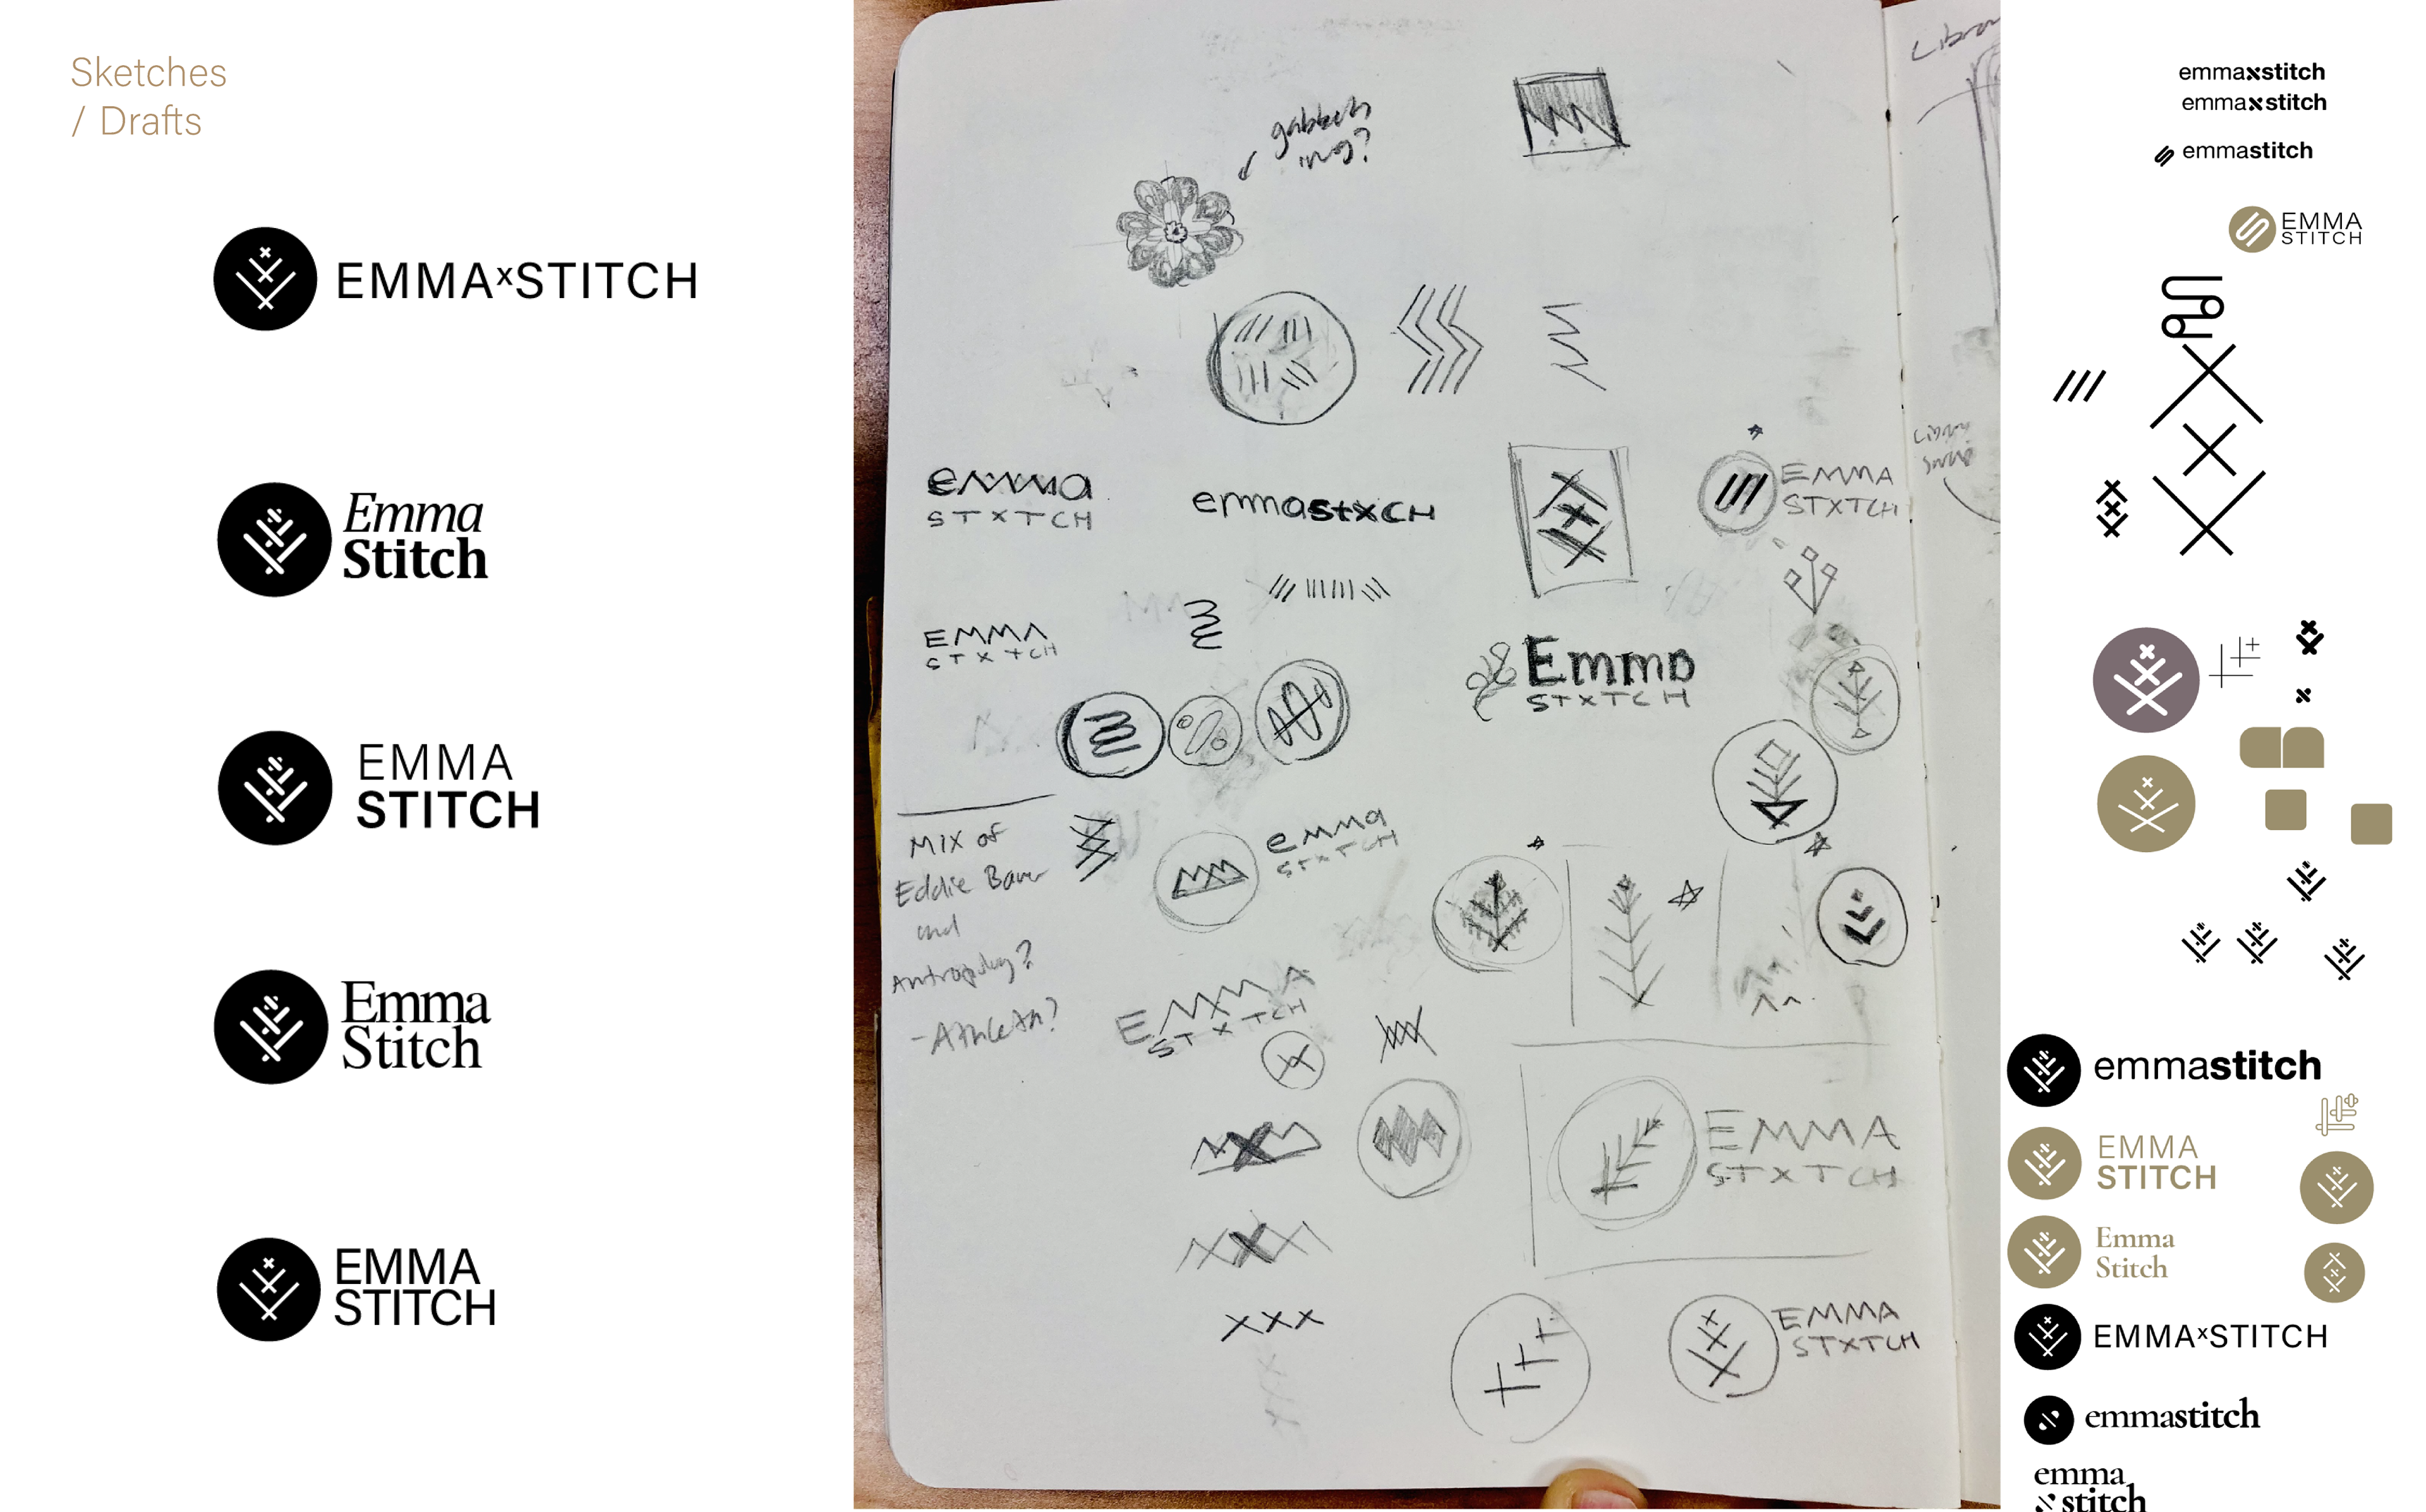 Sketches
/ Drafts
EMMAxSTITCH
Emma
Stitch
EMMA
STITCH
Emma
Stitch
EMMA
STITCH
ing?
emma
STXTCH
emmastxCH
EMMA
STXTCH
EMMA
STXTCH
Emma
STXTCH
Mix of
Eddie Bauer
and
emma
STXTCH
EMMA
STXTCH
EMMA
STXTCH
XXX
EMMA
STXTCH
Library
emmaxstitch
emmaxstitch
emmastitch
EMMA
STITCH
emmastitch
EMMA
STITCH
Emma
Stitch
EMMAxSTITCH
emmastitch
emma
stitch